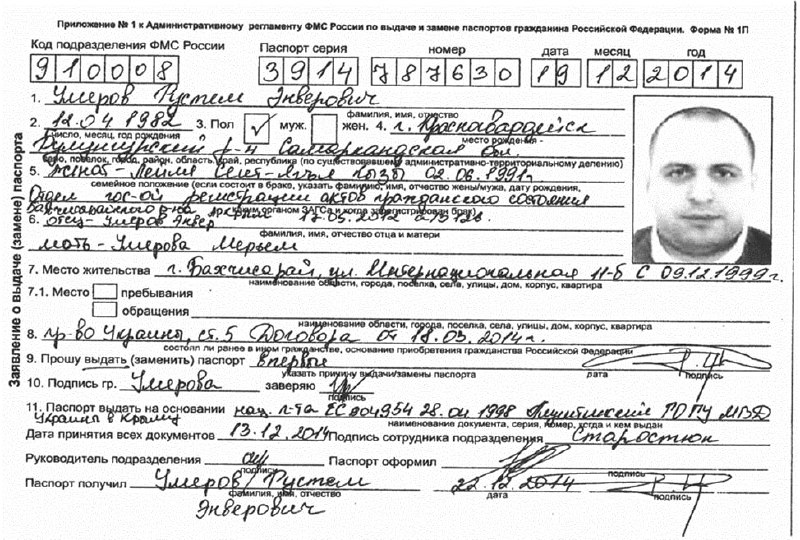 Приложение № 1 к Административному регламенту ФМС России по выдаче и замене паспортов гражданина Российской Федерации. Форма № 1П
Код подразделения ФМС России Паспорт серия номер дата месяц год
910008 3914 787630 19 12 2014
1. Умеров Рустем Энверович
фамилия, имя, отчество
2. 12.04 1982 3. Пол муж. жен. 4. г. Красногвардейск
число, месяц, год рождения место рождения -
р-н Самаркандская обл.
село, поселок, город, район, область, край, республика (по существовавшему административно-территориальному делению)
5. женат - Лейля Сеит-Ягъя кызы 02.06.1991г
семейное положение (если состоит в браке, указать фамилию, имя, отчество жены/мужа, дату рождения,
Отдел гос-ой регистрации актов гражданского состояния
каким органом ЗАГСа и когда зарегистрирован брак)
Бахчисарайского р-на
6. отец - Умеров Энвер
фамилия, имя, отчество отца и матери
мать - Умерова Мерьем
7. Место жительства г. Бахчисарай, ул. Интернациональная 11-б С 09.12.1999г.
наименование области, города, поселка, села, улицы, дом, корпус, квартира
7.1. Место пребывания
обращения
наименование области, города, поселка, села, улицы, дом, корпус, квартира
8. гр-во Украины, ст. 5 Договора от 18.03.2014г.
состоял ли ранее в ином гражданстве, основание приобретения гражданства Российской Федерации
9. Прошу выдать (заменить) паспорт впервые
указать причину выдачи/замены паспорта дата подпись
10. Подпись гр. Умерова заверяю
подпись
11. Паспорт выдать на основании нац. п-та ЕС 904954 28.04 1998 МВД
наименование документа, серия, номер, когда и кем выдан
Украины в Крыму
Дата принятия всех документов 13.12.2014 Подпись сотрудника подразделения Старостюк
Руководитель подразделения Паспорт оформил
подпись подпись
Паспорт получил Умеров Рустем 22.12.2014
фамилия, имя, отчество дата подпись
Энверович
Заявление о выдаче (замене) паспорта